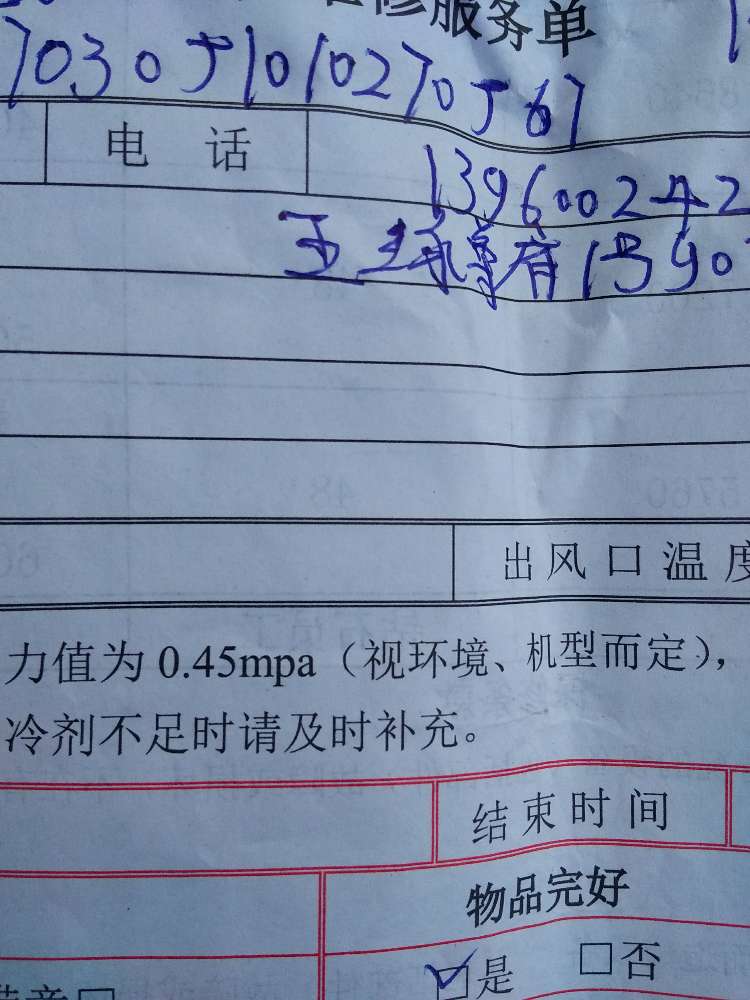 修服务单
70305101027 0567
电 话
139600242
1590
出风口温度
力值为 0.45mpa（视环境、机型而定），
冷剂不足时请及时补充。
结束时间
物品完好
☑是 □否